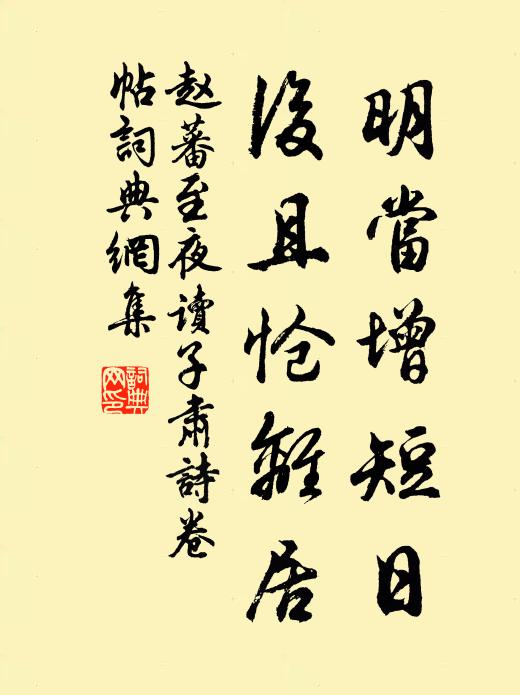 明當增短日
復且怆離居
赵蕃至夜讀子肅詩卷
帖詞典網集
詞典
网印